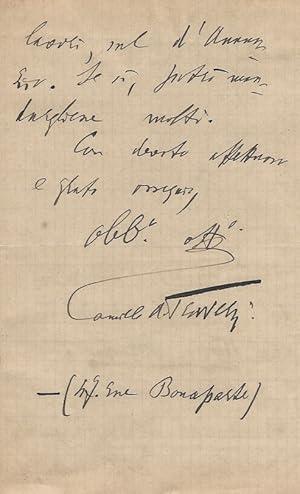 lavori, sul d'Annun
zio. Se sì, potrò man-
dargliene molti.
Con devoto affettuoso
e grato ossequio,
obb.º aff.º
Camillo A. Traversi
— (Ene Bonaparte)